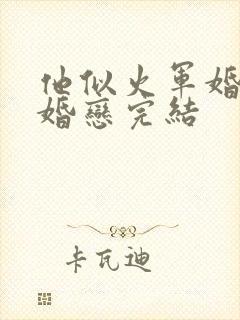 他似火軍婚
婚戀完結
卡瓦迪